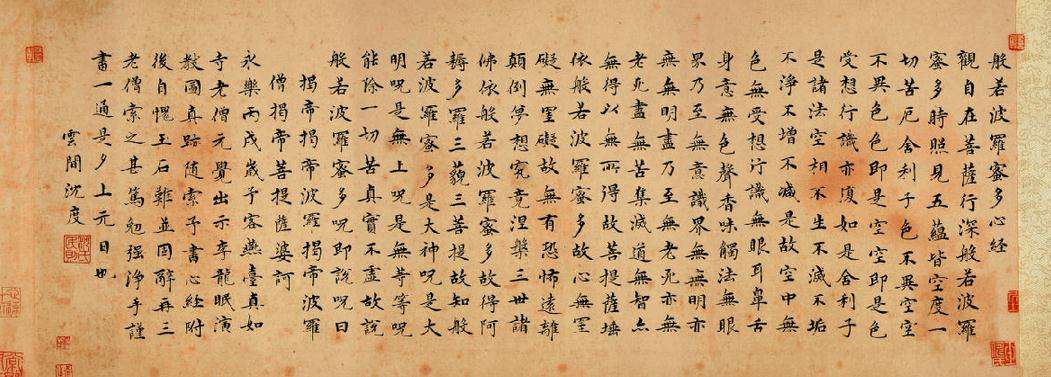 般若波羅蜜多心經
觀自在菩薩行深般若波羅
蜜多時照見五蘊皆空度一
切苦厄舍利子色不異空空
不異色色即是空空即是色
受想行識亦復如是舍利子
是諸法空相不生不滅不垢
不淨不增不減是故空中無
色無受想行識無眼耳鼻舌
身意無色聲香味觸法無眼
界乃至無意識界無無明亦
無無明盡乃至無老死亦無
老死盡無苦集滅道無智亦
無得以無所得故菩提薩埵
依般若波羅蜜多故心無罣
礙無罣礙故無有恐怖遠離
顛倒夢想究竟涅槃三世諸
佛依般若波羅蜜多故得阿
耨多羅三藐三菩提故知般
若波羅蜜多是大神呪是大
明呪是無上呪是無等等呪
能除一切苦真實不虛故說
般若波羅蜜多呪即說呪曰
揭帝揭帝波羅揭帝波羅
僧揭帝菩提薩婆訶
永樂丙戌歲予客燕臺真如
寺老僧元覺出示李龍眠演
教圖真跡隨索予書心經附
後自愧玉石難並固辭再三
老僧索之甚篤勉强淨手謹
書一通是夕上元日也
雲間沈度